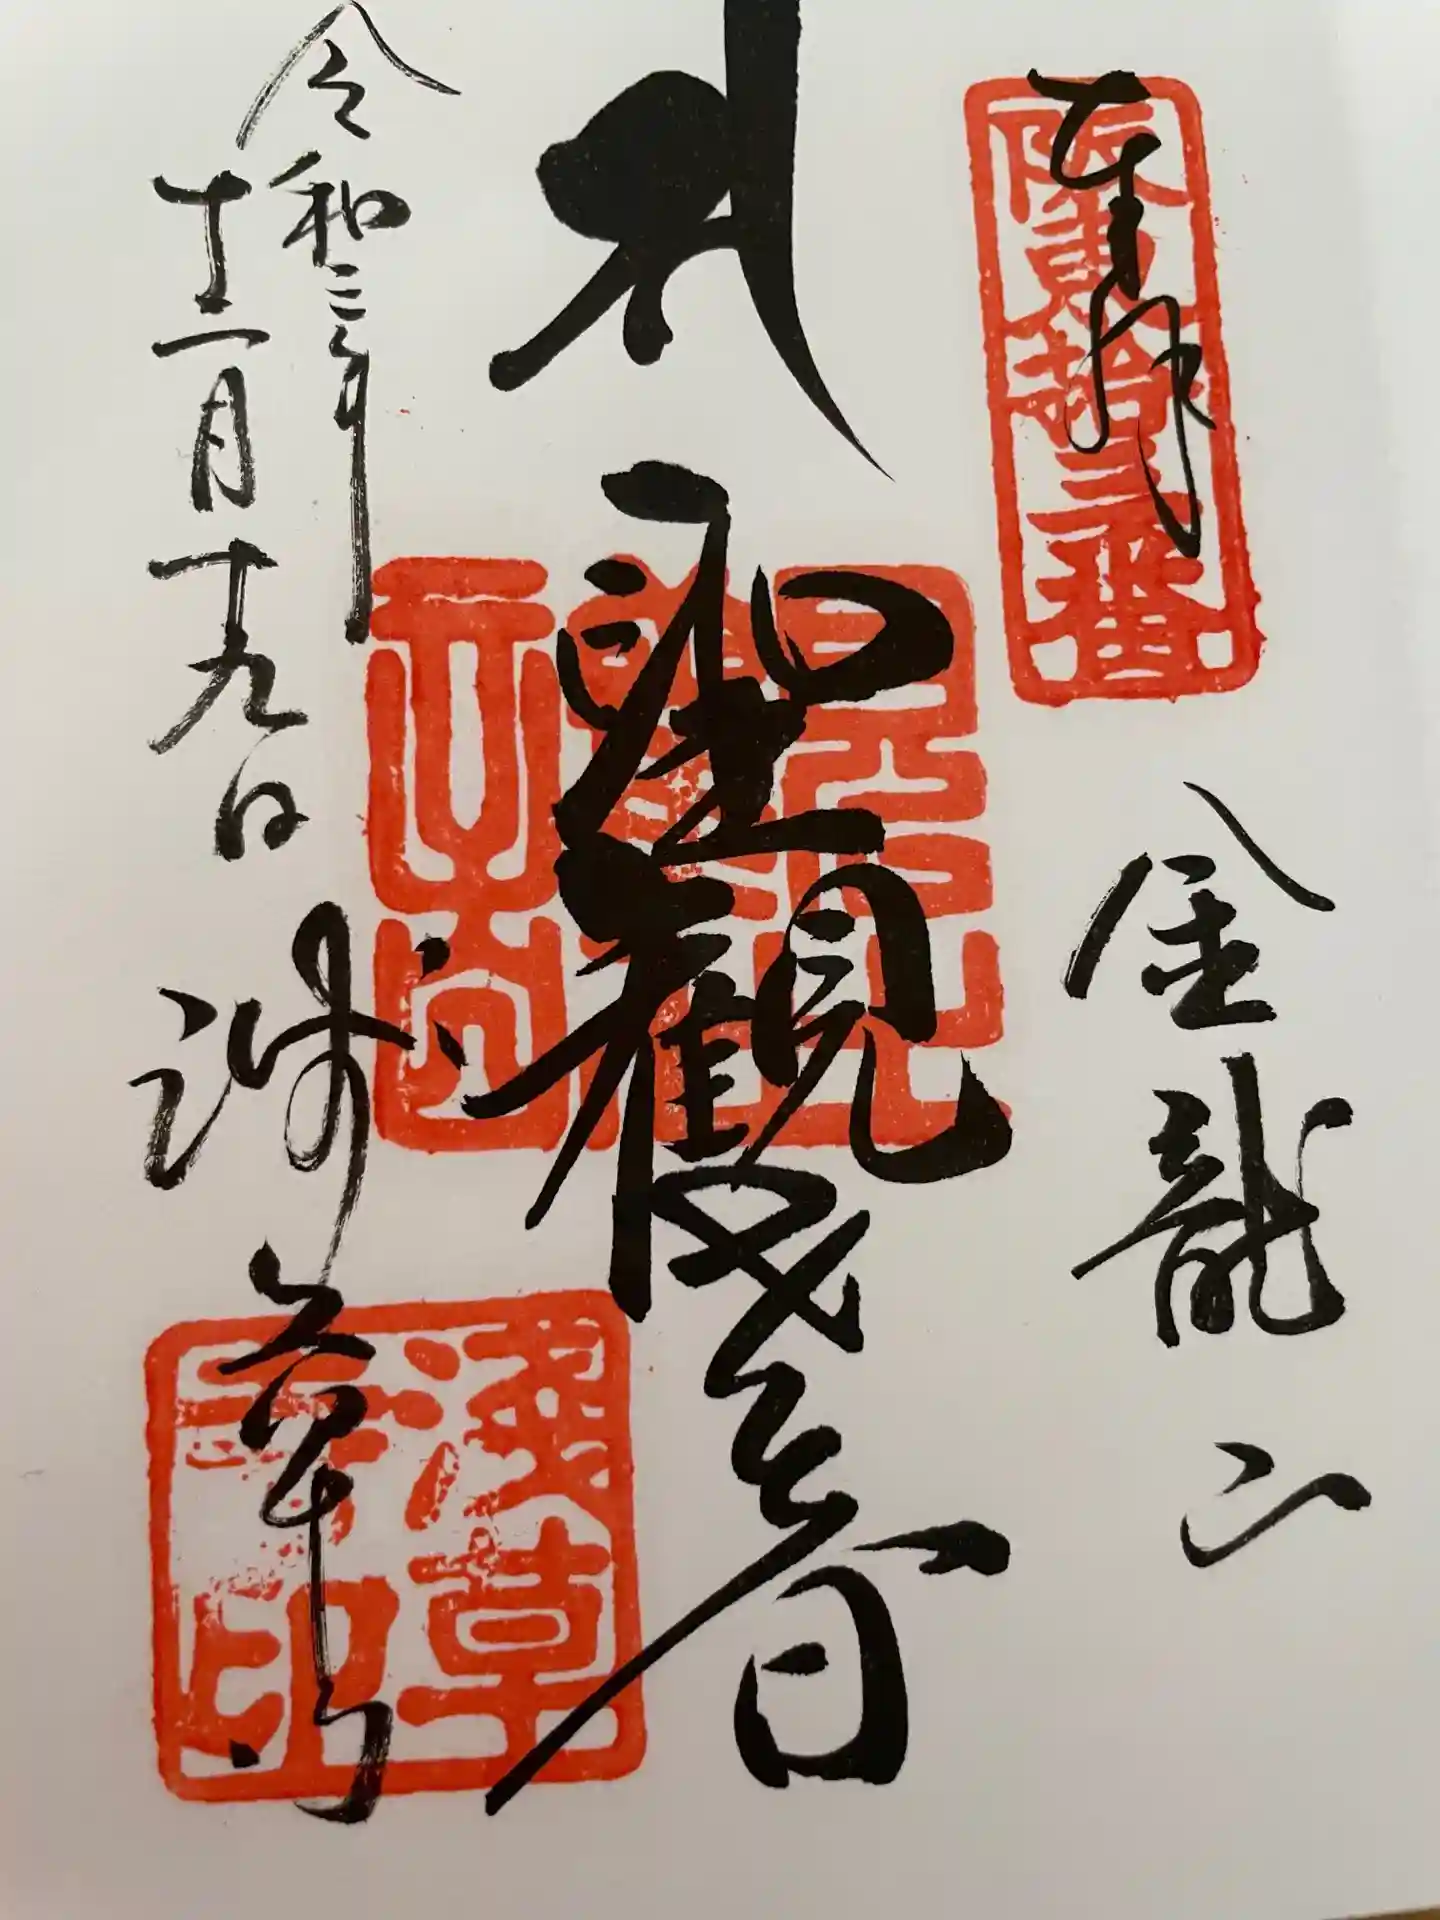 奉拝
坂東拾三番
金龍山
聖観世音
令和三年
十二月十九日
浅草寺
浅草寺印